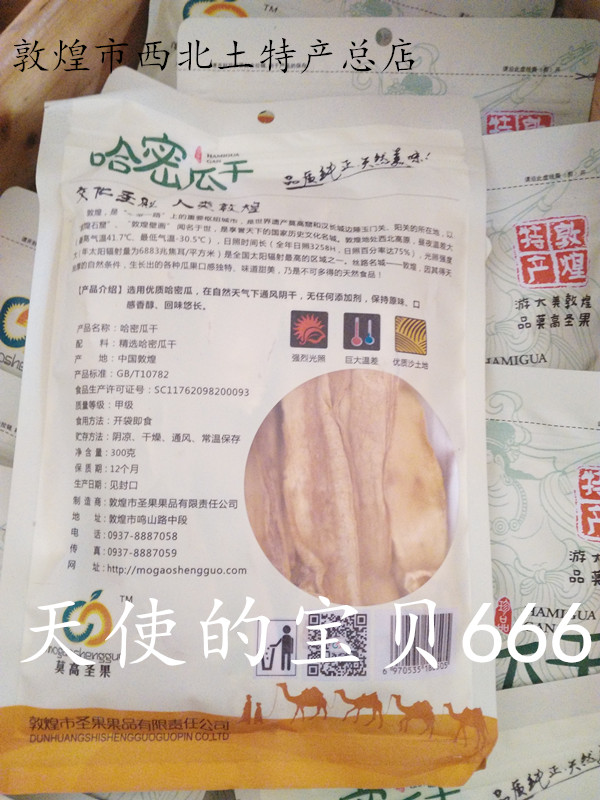 敦煌市西北土特产总店
哈密瓜干
HAMIGUA
GAN
品质纯正 天然美味!
文化圣殿 人类敦煌
上的重要枢纽城市,是世界遗产莫高窟和汉长城边陲玉门关、阳关的所在地,以
"敦煌壁画"闻名于世,是享誉天下的国家历史文化名城。敦煌地处西北高原,昼夜温差大
高气温41.7℃、最低气温-30.5℃),日照时间长(全年日照3258H,日照百分率达75%),光照强度
年太阳辐射量为6883兆焦耳/平方米)是全国太阳辐射最高的区域之一。丝路名城——敦煌,因其得天
的自然条件,生长出的各种瓜果口感独特、味道甜美,乃是不可多得的天然食品!
【产品介绍】选用优质哈密瓜,在自然天气下通风阴干,无任何添加剂,保持原味、口
感香醇、回味悠长。
产品名称:哈密瓜干
配 料:精选哈密瓜干
产 地:中国敦煌
产品标准:GB/T10782
食品生产许可证号:SC11762098200093
质量等级:甲级
食用方法:开袋即食
贮存方法:阴凉、干燥、通风、常温保存
净含量:300克
保 质 期:12个月
生产日期:见封口
制 造 商:敦煌市圣果果品有限责任公司
地 址:敦煌市鸣山路中段
电 话:0937-8887058
传 真:0937-8887059
网 址:http://mogaoshengguo.com
强烈光照
巨大温差
优质沙土地
天使的宝贝666
TM
莫高圣果
敦煌市圣果果品有限责任公司
DUNHUANGSHISHENGGUOGUOPIN CO,LTD
敦煌
特产
游大美敦煌
品莫高圣果
HAMIGUA
珍品
HAMIGUA
品质纯正·天然